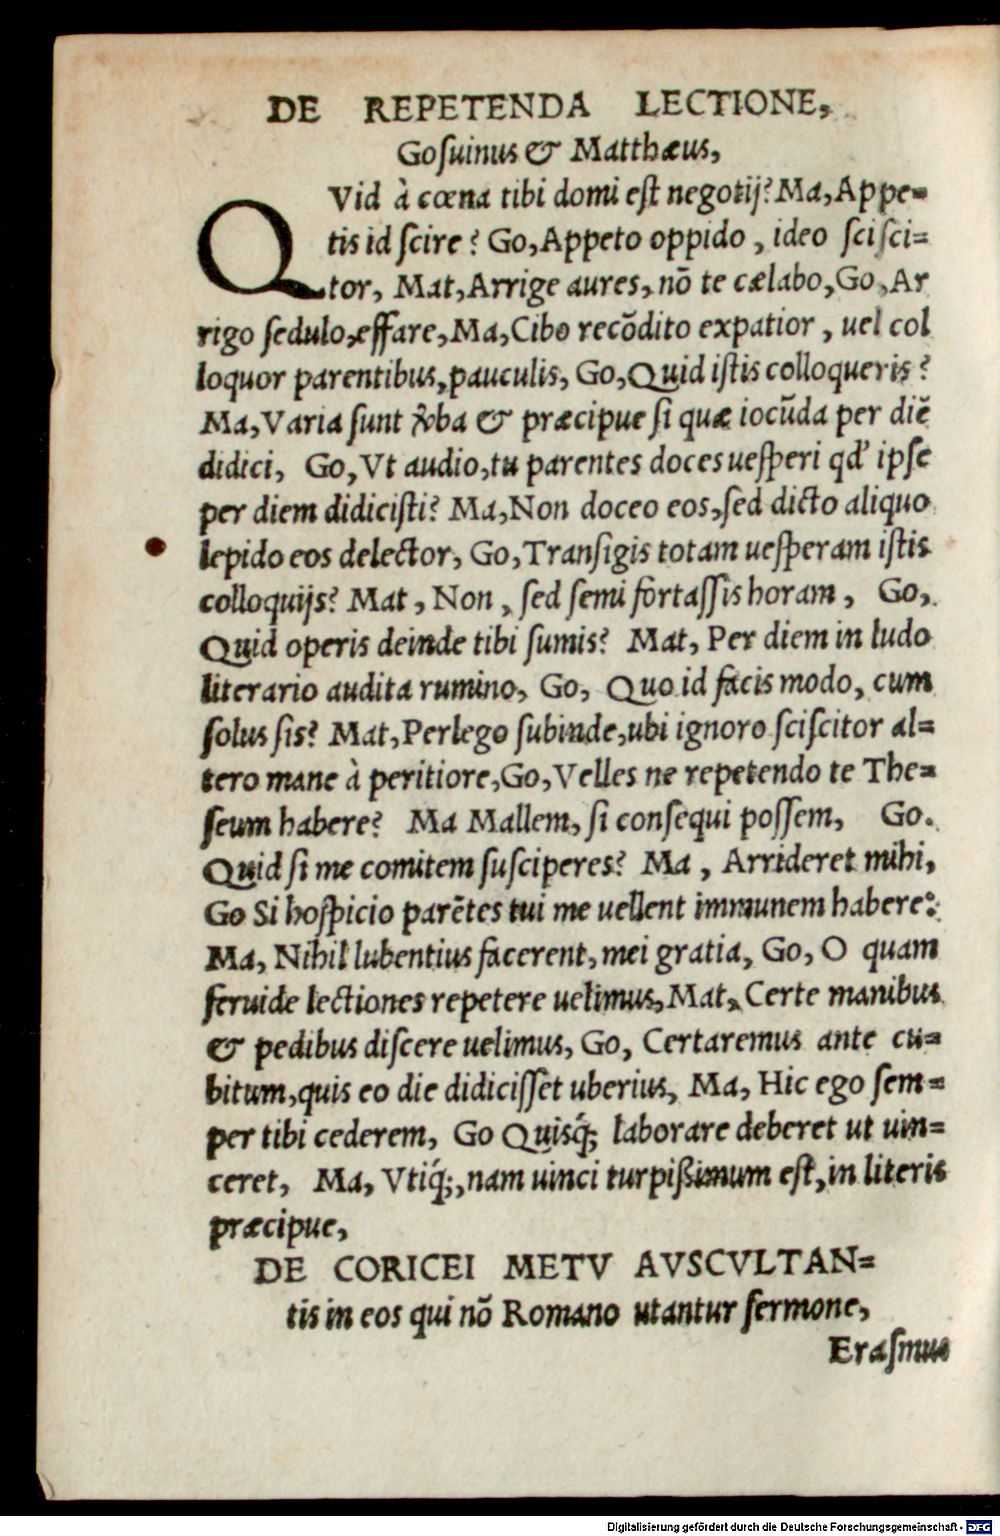 DE REPETENDA LECTIONE,
Goſuinus & Matthæus,
QVid à cœna tibi domi eſt negotij? Ma, Appe=
tis id ſcire? Go, Appeto oppido, ideo ſciſci=
tor, Mat, Arrige aures, nō te cælabo, Go, Ar
rigo ſedulo, effare, Ma, Cibo recōdito expatior, uel col
loquor parentibus, pauculis, Go, Quid iſtis colloqueris?
Ma, Varia ſunt ꝟba & præcipue ſi quæ iocūda per diē
didici, Go, Vt audio, tu parentes doces ueſperi qd' ipſe
per diem didiciſti? Ma, Non doceo eos, ſed dicto aliquo
lepido eos delector, Go, Tranſigis totam ueſperam iſtis
colloquijs? Mat, Non, ſed ſemi fortaſſis horam, Go,
Quid operis deinde tibi ſumis? Mat, Per diem in ludo
literario audita rumino, Go, Quo id facis modo, cum
ſolus ſis? Mat, Perlego ſubinde, ubi ignoro ſciſcitor al=
tero mane à peritiore, Go, Velles ne repetendo te The=
ſeum habere? Ma Mallem, ſi conſequi poſſem, Go.
Quid ſi me comitem ſuſciperes? Ma, Arrideret mihi,
Go Si hoſpicio parētes tui me uellent immunem habere?
Ma, Nihil lubentius facerent, mei gratia, Go, O quam
feruide lectiones repetere uelimus, Mat, Certe manibus
& pedibus diſcere uelimus, Go, Certaremus ante cu=
bitum, quis eo die didiciſſet uberius, Ma, Hic ego ſem=
per tibi cederem, Go Quisq́; laborare deberet ut uin=
ceret, Ma, Vtiq́;, nam uinci turpißimum eſt, in literis
præcipue,
DE CORICEI METV AVSCVLTAN=
tis in eos qui nō Romano utantur ſermone,
Eraſmus
Digitalisierung gefördert durch die Deutsche Forschungsgemeinschaft - DFG